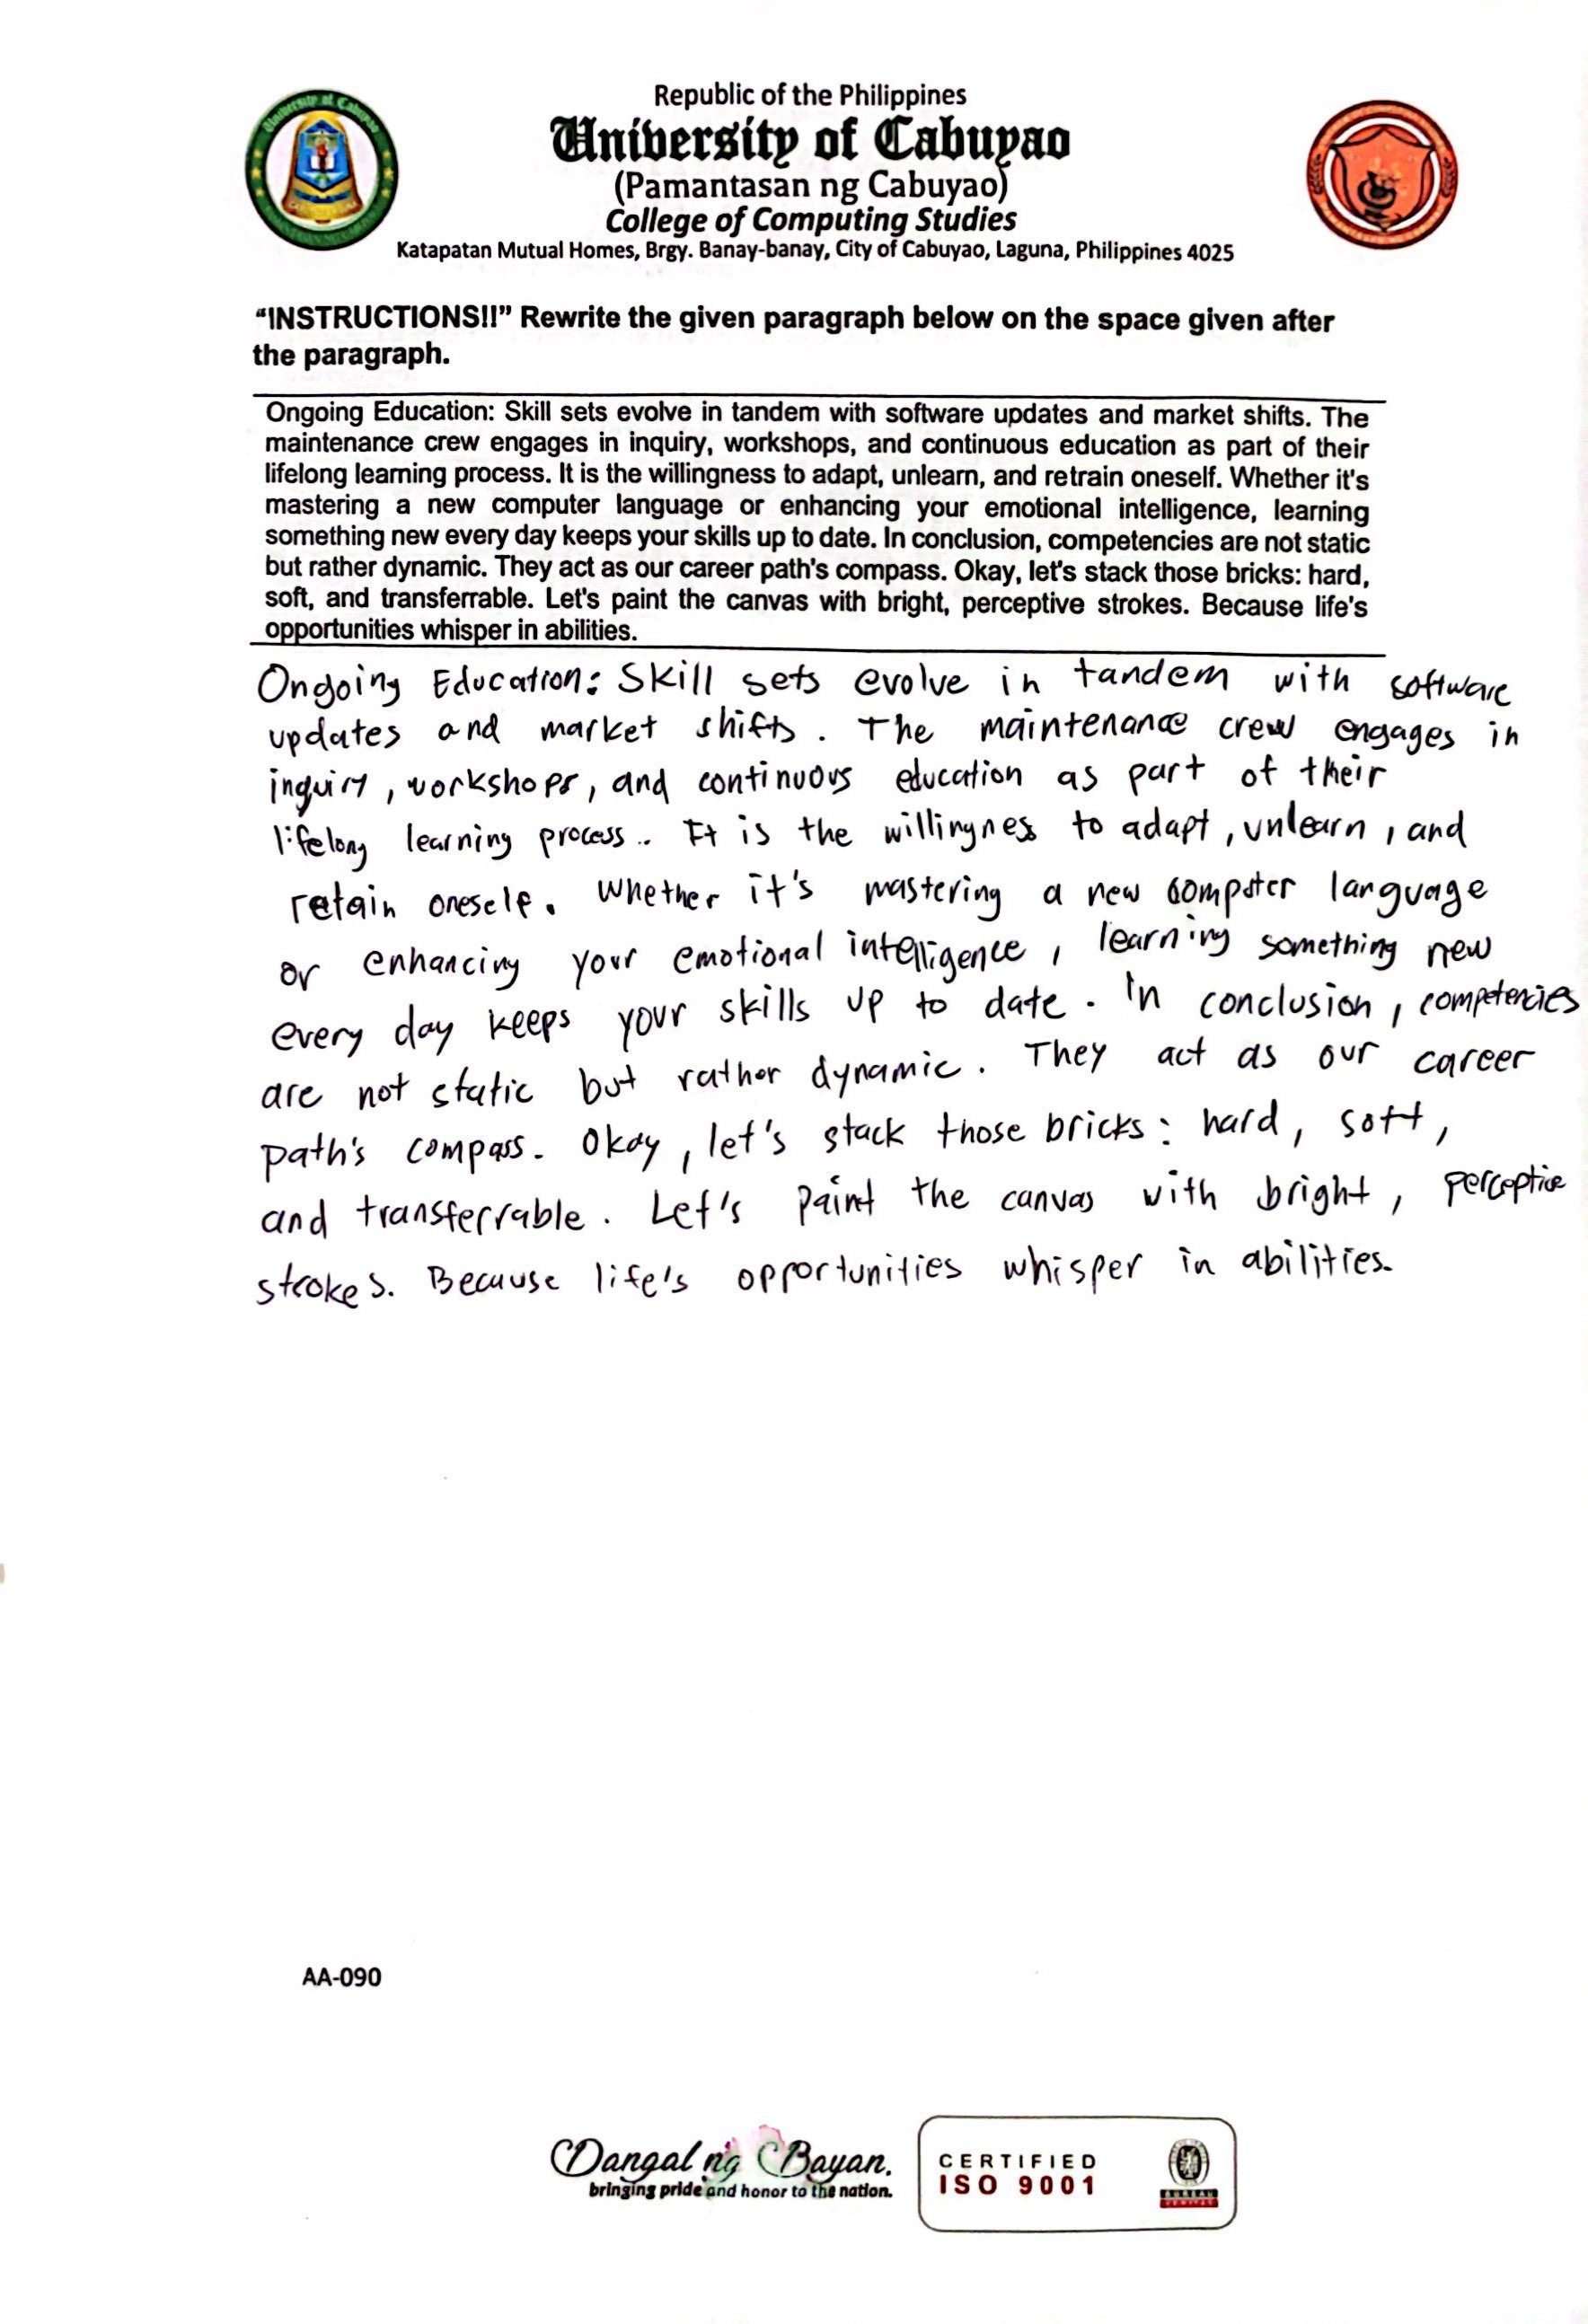 Republic of the Philippines
University of Cabuyao
(Pamantasan ng Cabuyao)
College of Computing Studies
Katapatan Mutual Homes, Brgy. Banay-banay, City of Cabuyao, Laguna, Philippines 4025
“INSTRUCTIONS!!” Rewrite the given paragraph below on the space given after
the paragraph.
Ongoing Education: Skill sets evolve in tandem with software updates and market shifts. The
maintenance crew engages in inquiry, workshops, and continuous education as part of their
lifelong learning process. It is the willingness to adapt, unlearn, and retrain oneself. Whether it's
mastering a new computer language or enhancing your emotional intelligence, learning
something new every day keeps your skills up to date. In conclusion, competencies are not static
but rather dynamic. They act as our career path's compass. Okay, let's stack those bricks: hard,
soft, and transferrable. Let's paint the canvas with bright, perceptive strokes. Because life's
opportunities whisper in abilities.
Ongoing Education: Skill sets evolve in tandem with software
updates and market shifts. The maintenance crew engages in
inquiry, workshops, and continuous education as part of their
lifelong learning process.. It is the willingnes to adapt, unlearn, and
retain oneself. Whether it's mastering a new computer language
or enhancing your emotional intelligence, learning something new
every day keeps your skills up to date. In conclusion, competencies
are not static but rather dynamic. They act as our career
path's compass. Okay, let's stack those bricks: hard, soft,
and transferrable. Let's paint the canvas with bright, perceptive
strokes. Because life's opportunities whisper in abilities.
AA-090
Dangal ng Bayan.
bringing pride and honor to the nation.
CERTIFIED
ISO 9001
BUREAU
VERITAS